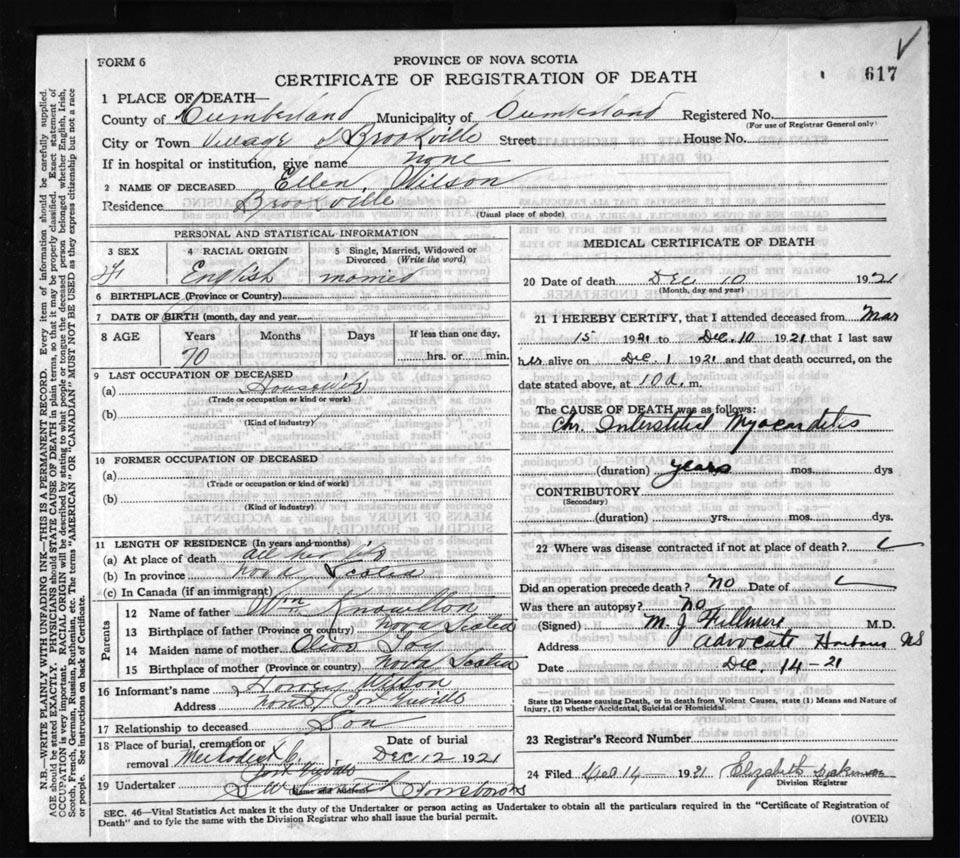 FORM 6
PROVINCE OF NOVA SCOTIA
CERTIFICATE OF REGISTRATION OF DEATH
617
1 PLACE OF DEATH—
County of Cumberland Municipality of Cumberland Registered No.
(For use of Registrar General only)
City or Town Village of Brookville Street House No.
If in hospital or institution, give name none
2 NAME OF DECEASED Ellen Wilson
Residence Brookville
(Usual place of abode)
PERSONAL AND STATISTICAL INFORMATION
3 SEX 4 RACIAL ORIGIN 5 Single, Married, Widowed or Divorced (Write the word)
F English married
6 BIRTHPLACE (Province or Country)
7 DATE OF BIRTH (month, day and year)
8 AGE Years Months Days If less than one day,
70 hrs. or min.
9 LAST OCCUPATION OF DECEASED
(a) Housewife
(Trade or occupation or kind or work)
(b)
(Kind of industry)
10 FORMER OCCUPATION OF DECEASED
(a)
(Trade or occupation or kind or work)
(b)
(Kind of industry)
11 LENGTH OF RESIDENCE (In years and months)
(a) At place of death all her life
(b) In province Nova Scotia
(c) In Canada (if an immigrant)
Parents
12 Name of father Wm Knowlton
13 Birthplace of father (Province or country) Nova Scotia
14 Maiden name of mother
15 Birthplace of mother (Province or country) Nova Scotia
16 Informant's name Wilson
Address
17 Relationship to deceased Son
18 Place of burial, cremation or removal Date of burial
Methodist Dec 12 1921
19 Undertaker Parrsboro NS
(Name and address)
MEDICAL CERTIFICATE OF DEATH
20 Date of death Dec 10 1921
(Month, day and year)
21 I HEREBY CERTIFY, that I attended deceased from Mar
15 1921 to Dec. 10 1921 that I last saw
her alive on Dec 1 1921 and that death occurred, on the
date stated above, at 10 a. m.
The CAUSE OF DEATH was as follows:
Chr. Interstitial Myocarditis
(duration) years mos. dys
CONTRIBUTORY
(Secondary)
(duration) yrs. mos. dys.
22 Where was disease contracted if not at place of death?
Did an operation precede death? No Date of
Was there an autopsy? No
(Signed) M. J. Fillmore M.D.
Address Advocate Harbour NS
Date Dec 14-21
State the Disease causing Death, or in death from Violent Causes, state (1) Means and Nature of Injury, (2) whether Accidental, Suicidal or Homicidal.
23 Registrar's Record Number
24 Filed Dec 14— 1921 Elizabeth
Division Registrar
SEC. 46—Vital Statistics Act makes it the duty of the Undertaker or person acting as Undertaker to obtain all the particulars required in the "Certificate of Registration of
Death" and to fyle the same with the Division Registrar who shall issue the burial permit.
(OVER)
N.B.—WRITE PLAINLY WITH UNFADING INK—THIS IS A PERMANENT RECORD. Every item of information should be carefully supplied.
AGE should be stated EXACTLY. PHYSICIANS should STATE CAUSE OF DEATH in plain terms, so that it may be properly classified. Exact statement of
OCCUPATION is very important. RACIAL ORIGIN will be described by stating to what people or tongue the deceased person belonged, whether English, Irish,
Scotch, French, German, Russian, Ruthenian, etc. The terms "AMERICAN" OR "CANADIAN" MUST NOT BE USED as they express citizenship but not a race
or people. See instructions on back of Certificate.